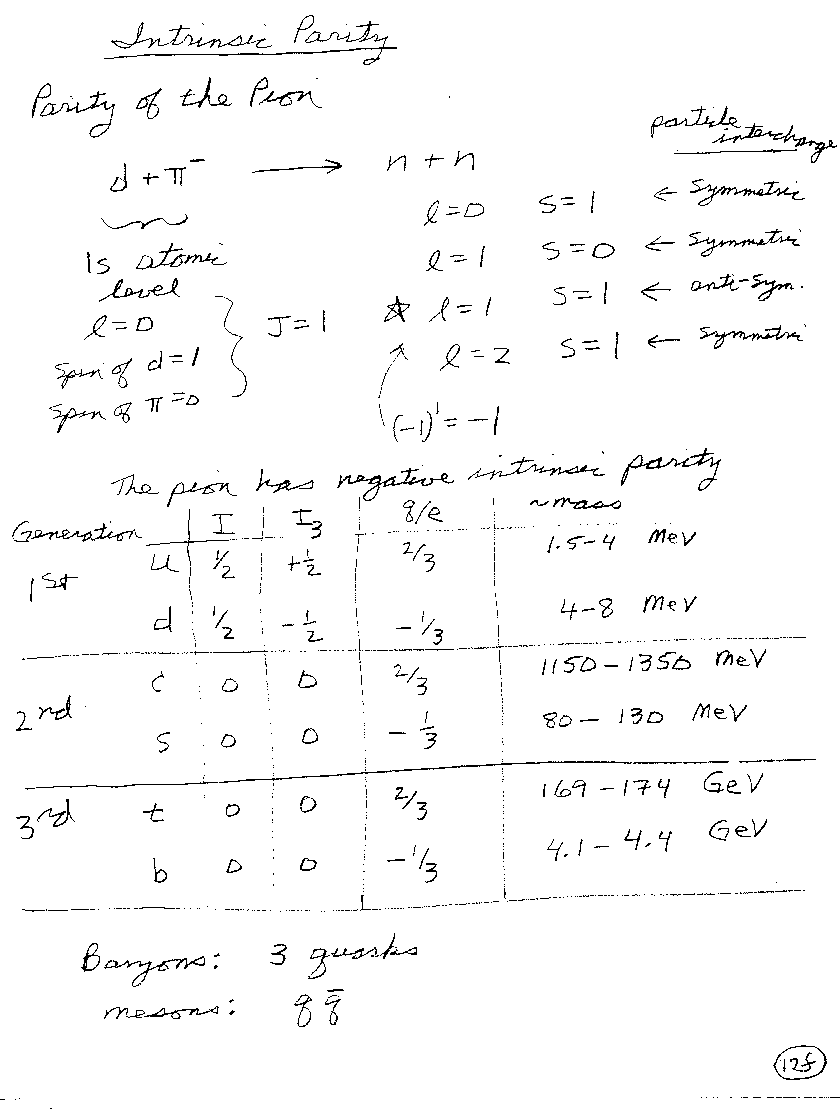 Intrinsic Parity
Parity of the Pion
particle interchange
d + π⁻ ⟶ n + n
l=0 s=1 ← Symmetric
1s atomic level
l=1 s=0 ← Symmetric
l=0
J=1
☆ l=1 s=1 ← anti-sym.
Spin of d=1
l=2 s=1 ← Symmetric
Spin of π=0
(-1)¹ = -1
The pion has negative intrinsic parity
Generation I I₃ q/e ~mass
1st u 1/2 +1/2 2/3 1.5-4 MeV
d 1/2 -1/2 -1/3 4-8 MeV
2nd c 0 0 2/3 1150-1350 MeV
s 0 0 -1/3 80-130 MeV
3rd t 0 0 2/3 169-174 GeV
b 0 0 -1/3 4.1-4.4 GeV
Baryons: 3 quarks
mesons: q q̄
12f